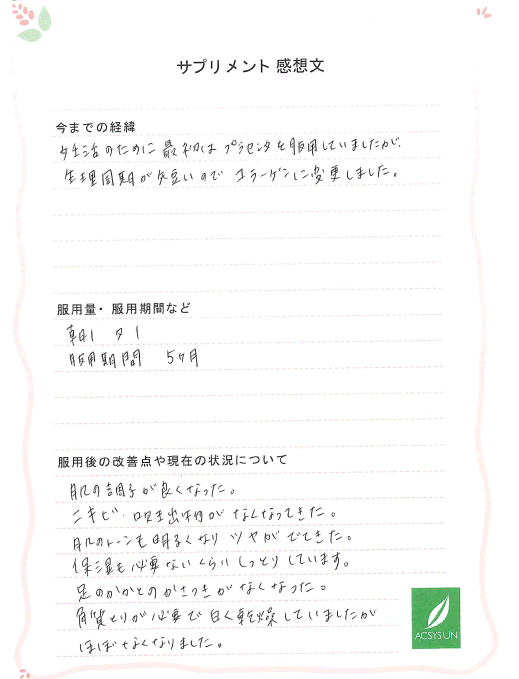 サプリメント 感想文
今までの経緯
妊活のために 最初は プラセンタを服用していましたが、
生理周期が短いので コラーゲンに変更しました。
服用量・服用期間など
朝1 夕1
服用期間 5ヶ月
服用後の改善点や現在の状況について
肌の調子が良くなった。
ニキビ・吹き出物がなくなってきた。
肌のトーンも明るくなり ツヤがでてきた。
保湿も必要ないくらい しっとりしています。
足のかかとのかさつきがなくなった。
角質とりが必要で白く乾燥していましたが
ほぼなくなりました。
ACSYSUN